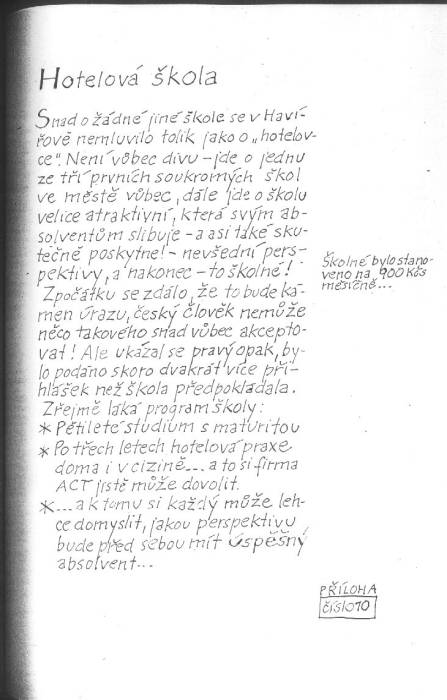 Hotelová škola
Snad o žádné jiné škole se v Haví-
řově nemluvilo tolik jako o „hotelov-
ce". Není vůbec divu – jde o jednu
ze tří prvních soukromých škol
ve městě vůbec, dále jde o školu
velice atraktivní, která svým ab-
solventům slibuje – a asi také sku-
tečně poskytne! – nevšední pers-
pektivy, a nakonec – to školné!
Školné bylo stano-
veno na 900 Kčs
měsíčně...
Zpočátku se zdálo, že to bude ka-
men úrazu, český člověk nemůže
něco takového snad vůbec akcepto-
vat! Ale ukázal se pravý opak, by-
lo podáno skoro dvakrát více při-
hlášek než škola předpokládala.
Zřejmě láká program školy:
* Pětileté studium s maturitou
* Po třech letech hotelová praxe
doma i v cizině... a to si firma
ACT jistě může dovolit.
*...a k tomu si každý může leh-
ce domyslit, jakou perspektivu
bude před sebou mít úspěšný
absolvent...
PŘÍLOHA
ČÍSLO 10